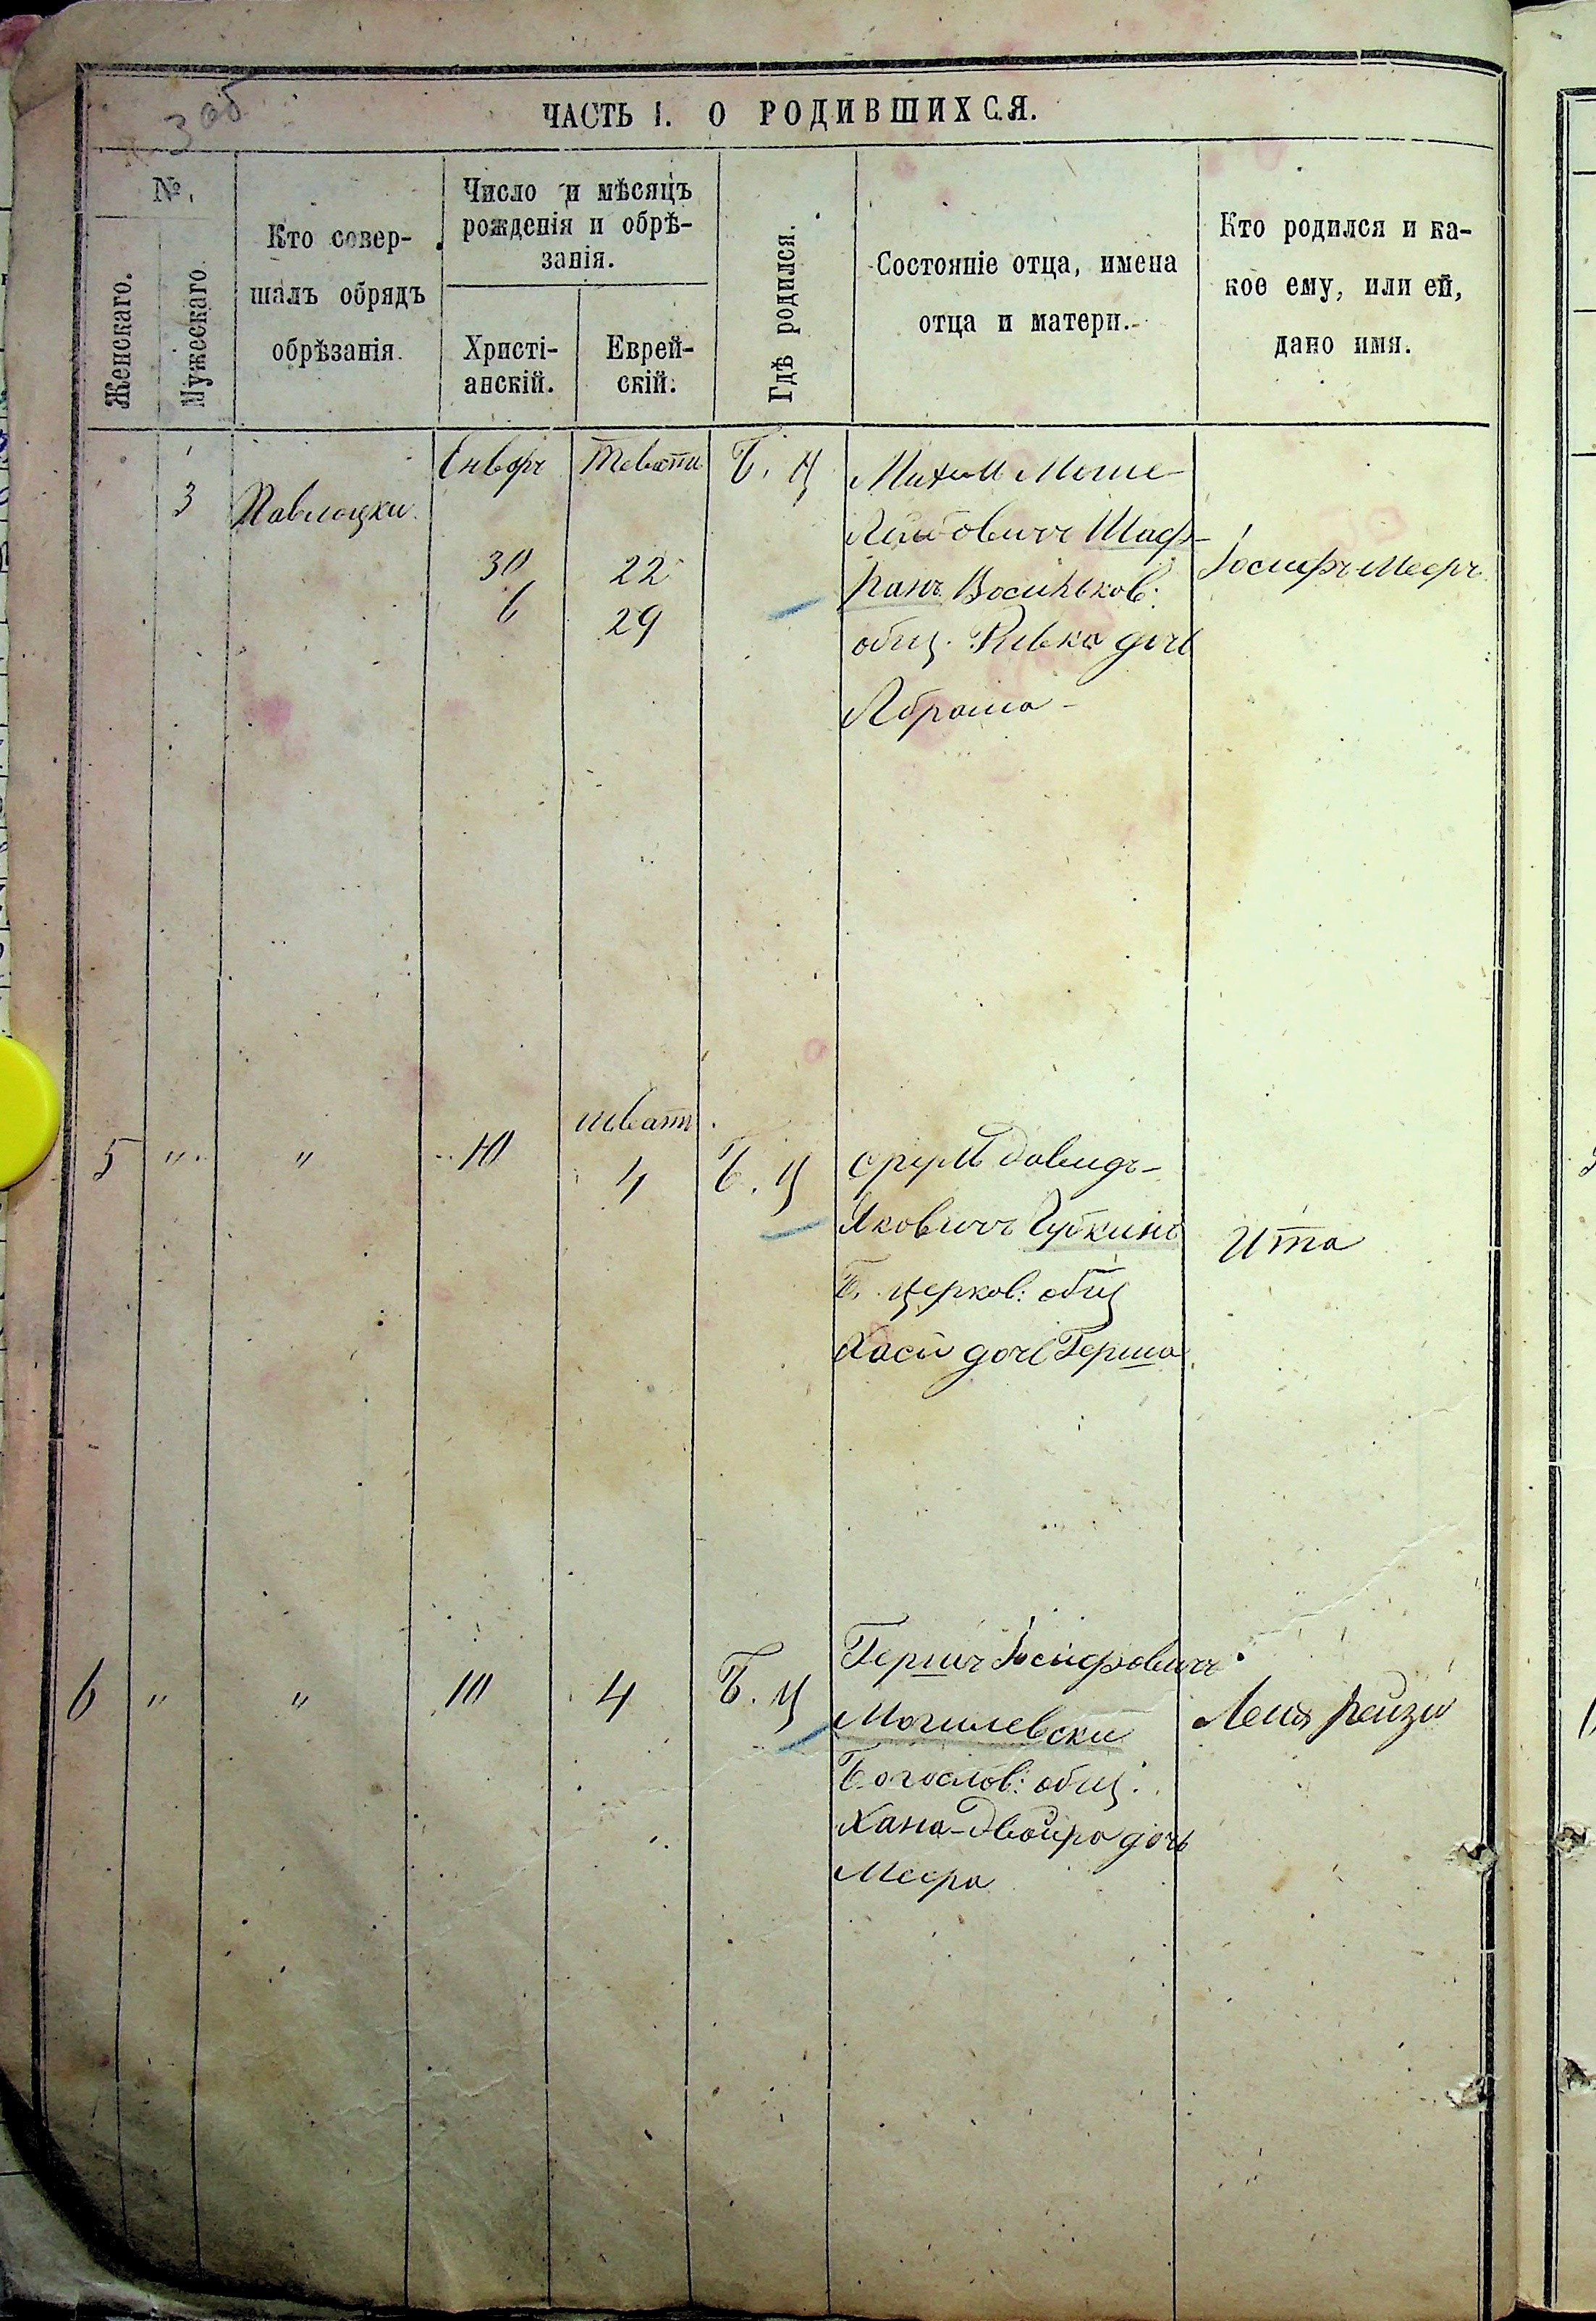 3 об
ЧАСТЬ I. О РОДИВШИХСЯ.
№.
Женскаго.
Мужескаго.
Кто совер-
шалъ обрядъ
обрѣзанія.
Число и мѣсяцъ
рожденія и обрѣ-
занія.
Христі-
анскій.
Еврей-
скій.
Гдѣ родился.
Состояніе отца, имена
отца и матери.
Кто родился и ка-
кое ему, или ей,
дано имя.
3
Павлоцки
Енваръ
30
6
Теватъ
22
29
Б. Ц
Михил Мошe
Лейбовичъ Шаф-
ранъ Васильков:
общ. Ривка дочь
Абрама
Іосифъ Мееръ
5 " "
10
шватъ
4
Б. Ц
Срулъ Давидъ-
Яковичъ Губкинъ
Б. Церков: общ
Хася дочь Герша
Ита
6 " "
10
4
Б. Ц
Гершъ Іосифовичъ
Могилевски
Богослов: общ.
Хана-Двойра дочь
Меера
Лея Рейзя